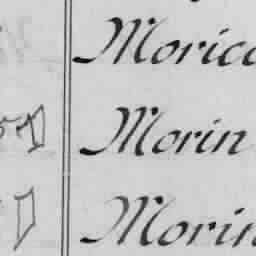 Moricc
Morin
Morin